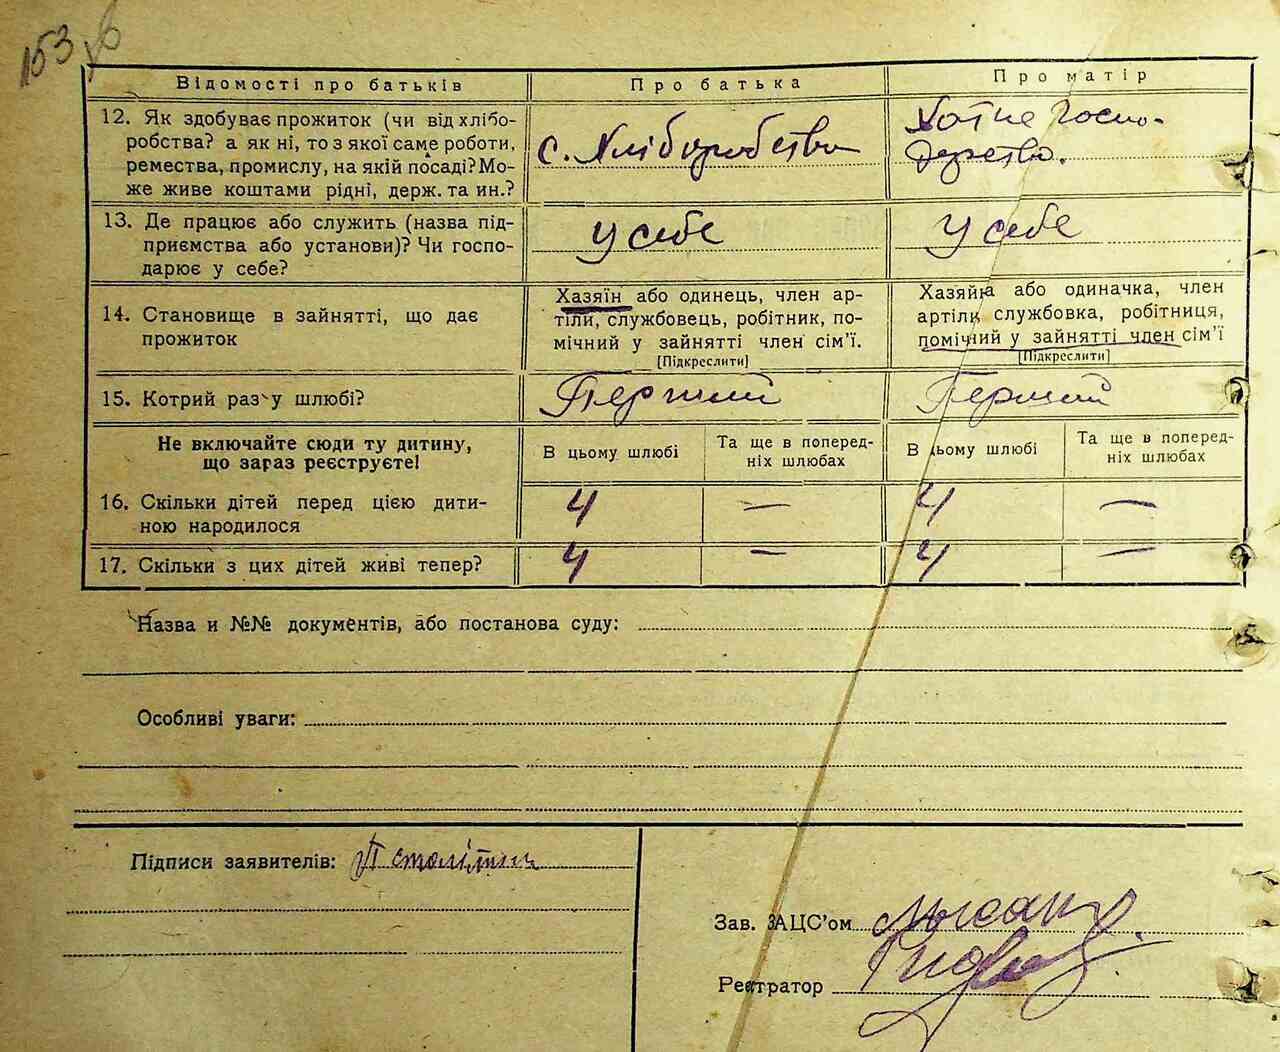 153
Відомості про батьків
Про батька
Про матір
12. Як здобуває прожиток (чи від хлібо-
робства? а як ні, то з якої саме роботи,
ремества, промислу, на якій посаді? Мо-
же живе коштами рідні, держ. та ин.?
с. Хліборобство
Хотне госпо-
дарство.
13. Де працює або служить (назва під-
приємства або установи)? Чи госпо-
дарює у себе?
У себе
У себе
14. Становище в зайнятті, що дає
прожиток
Хазяїн або одинець, член ар-
тіли, службовець, робітник, по-
мічний у зайнятті член сім'ї.
[Підкреслити]
Хазяйка або одиначка, член
артіли, службовка, робітниця,
помічний у зайнятті член сім'ї
[Підкреслити]
15. Котрий раз у шлюбі?
Перший
Перший
Не включайте сюди ту дитину,
що зараз реєструєте!
В цьому шлюбі
Та ще в поперед-
ніх шлюбах
В цьому шлюбі
Та ще в поперед-
ніх шлюбах
16. Скільки дітей перед цією дити-
ною народилося
4 — 4 —
17. Скільки з цих дітей живі тепер?
4 — 4 —
Назва и №№ документів, або постанова суду:
Особливі уваги:
Підписи заявителів:
Зав. ЗАЦС'ом
Реєтратор